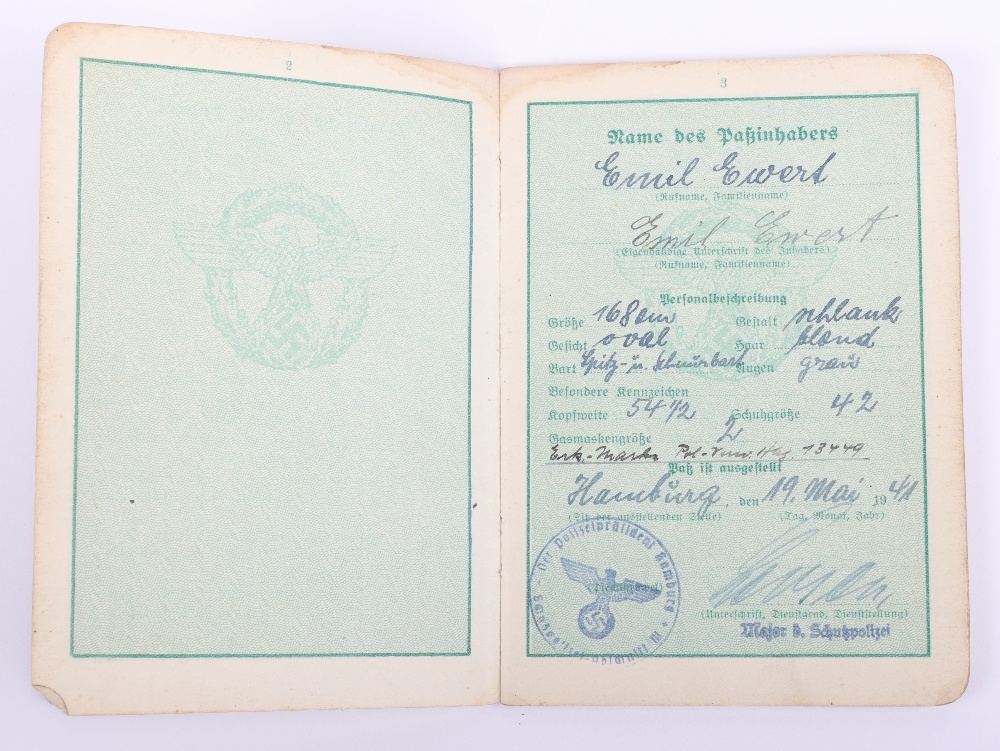 2
3
Name des Paßinhabers
Emil Ewert
(Rufname, Familienname)
Emil Ewert
(Eigenhändige Unterschrift des Inhabers)
(Rufname, Familienname)
Personalbeschreibung
Größe 168 cm Gestalt schlank
Gesicht oval Haar blond
Bart Spitz- u. Schnurbart Augen grau
Besondere Kennzeichen
Kopfweite 54 1/2 Schuhgröße 42
Gasmaskengröße 2
Erk.-Marke Pol.-Verw. Hbg. 13449
Paß ist ausgestellt
Hamburg, den 19. Mai 1941
(Sitz der ausstellenden Stelle) (Tag, Monat, Jahr)
Der Polizeipräsident Hamburg
(Dienstsiegel)
(Unterschrift, Dienstgrad, Dienststellung)
Major d. Schutzpolizei